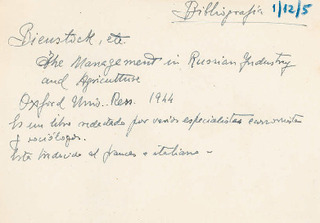 Bibliografía 1/12/5
Bienstock, etc.
The Management in Russian Industry
and Agriculture
Oxford Univ. Press. 1944
Es un libro redactado por varios especialistas economistas
y sociólogos.
Está traducido al frances e italiano -